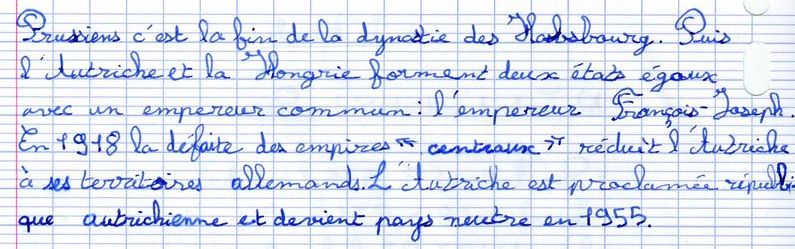 Prussiens c'est la fin de la dynastie des Habsbourg. Puis
l'Autriche et la Hongrie forment deux états égaux
avec un empereur commun : l'empereur François-Joseph.
En 1918 la défaite des empires " centraux " réduit l'Autriche
à ses territoires allemands. L'Autriche est proclamée républi-
que autrichienne et devient pays neutre en 1955.